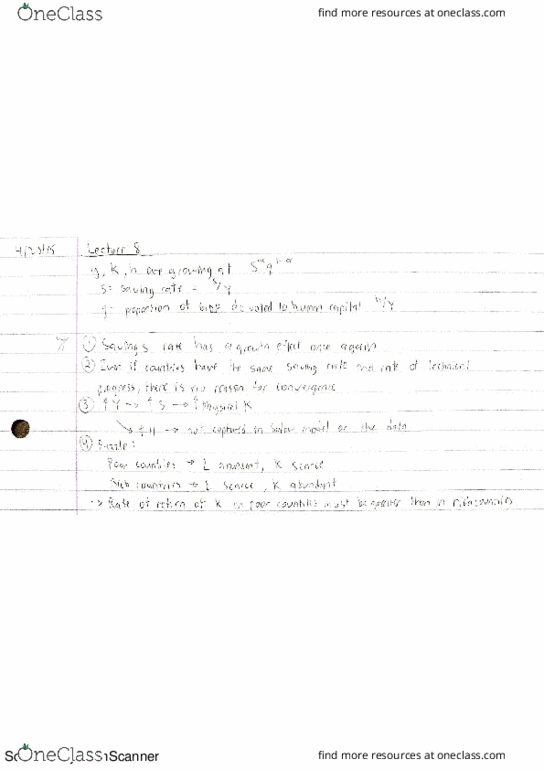 OneClass
find more resources at oneclass.com
Lecture 8
y, k, h are growing at
S = saving rate =
q = proportion of devoted to human capital
① Savings rate has a growth effect once again
② Even if countries have the same saving rate and rate of technical
progress, there is no reason for convergence
③ ↑ Y → ↑ S → ↑ Physical K
→ not captured in Solow model or the data
④ Puzzle:
Poor countries → L abundant, K scarce
Rich countries → L scarce, K abundant
→ Rate of return of K in poor countries must be greater than in rich countries
OneClass
Scanner
find more resources at oneclass.com